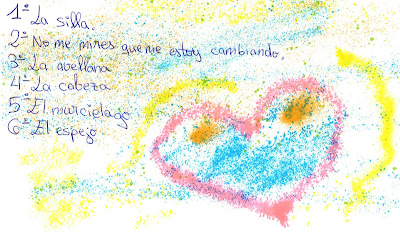 1º La silla.
2º No me mires que me estoy cambiando.
3º La avellana
4º La cabeza
5º El murciélago
6º El espejo